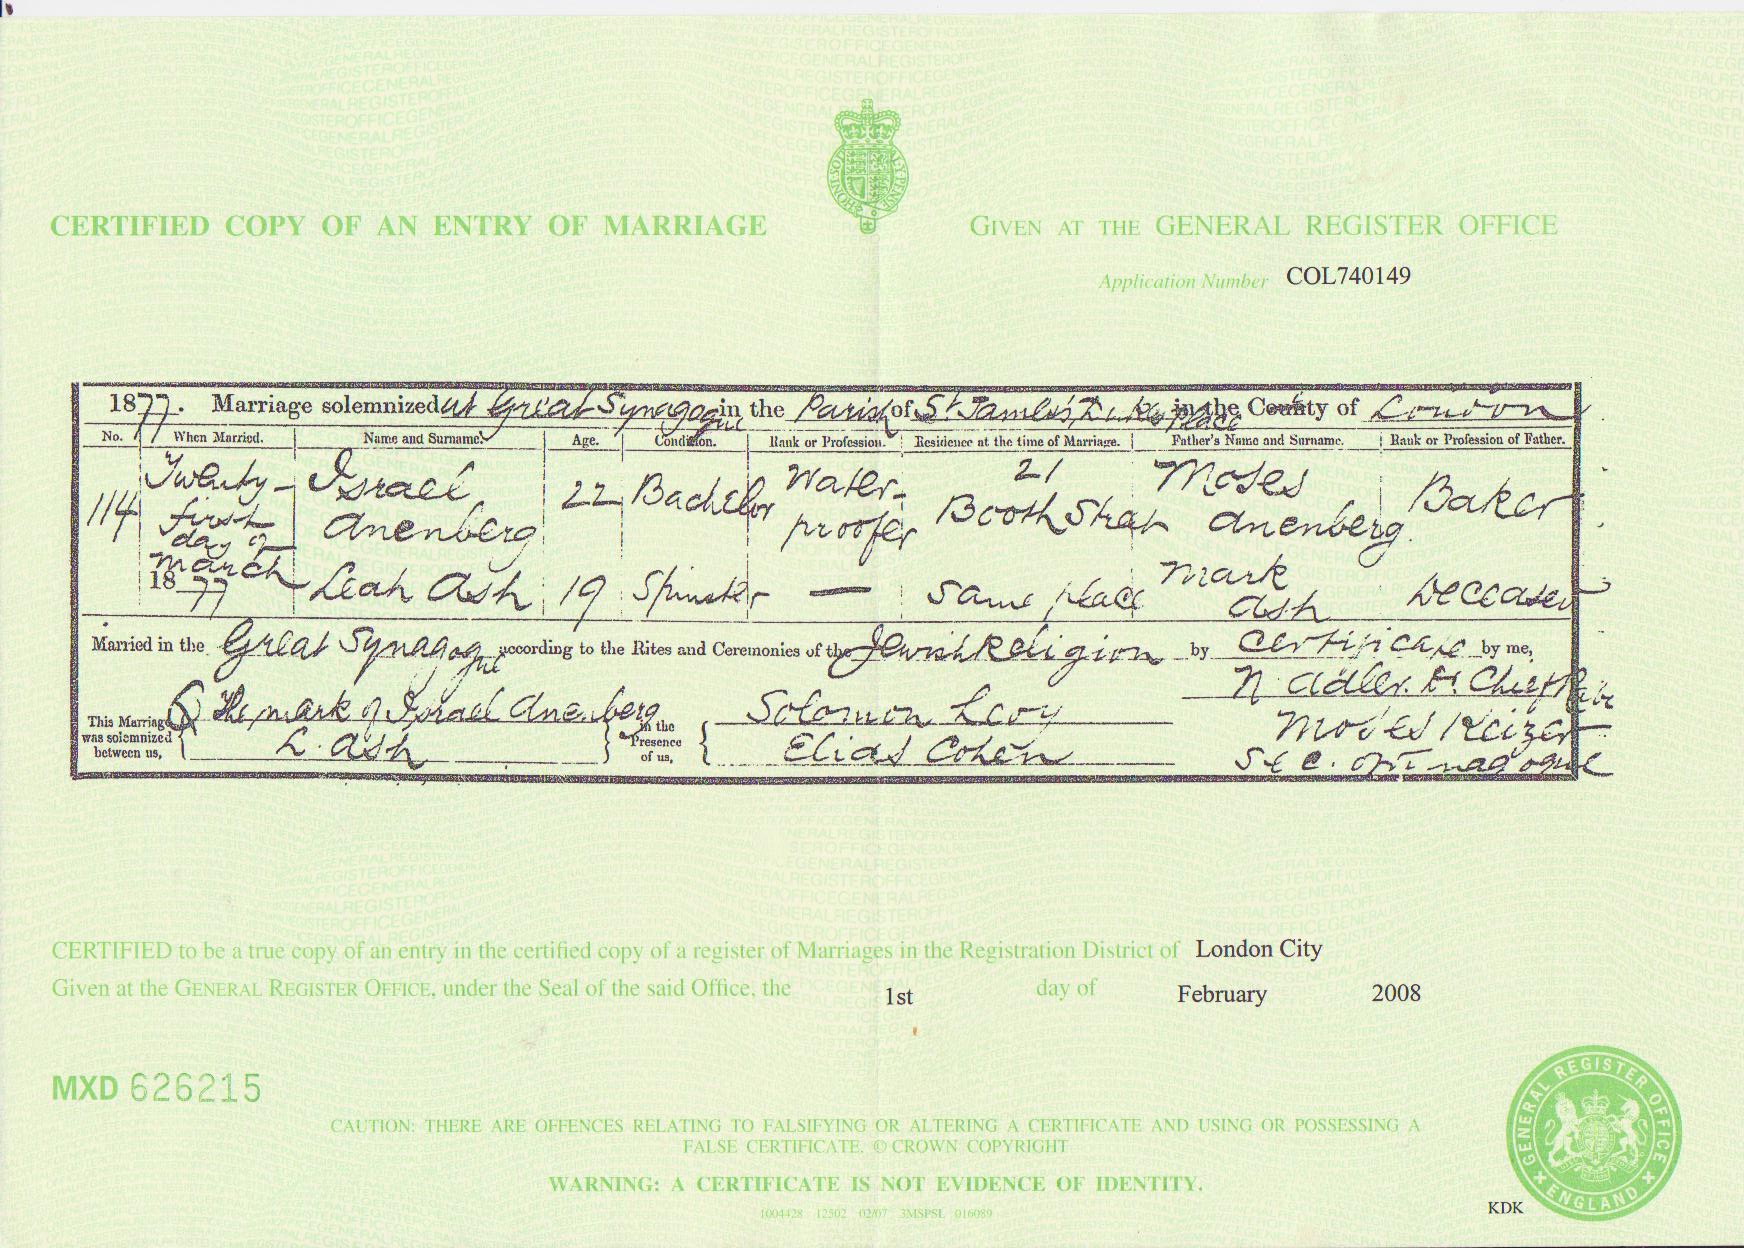 CERTIFIED COPY OF AN ENTRY OF MARRIAGE
GIVEN AT THE GENERAL REGISTER OFFICE
Application Number COL740149
1877. Marriage solemnized at Great Synagogue in the Parish of St James's, Dukes place in the County of London
No. When Married. Name and Surname. Age. Condition. Rank or Profession. Residence at the time of Marriage. Father's Name and Surname. Rank or Profession of Father.
114 Twenty-first day of March 1877
Israel Anenberg 22 Bachelor Water-proofer 21 Booth Street Moses Anenberg Baker
Leah Ash 19 Spinster — Same place Mark Ash Deceased
Married in the Great Synagogue according to the Rites and Ceremonies of the Jewish Religion by Certificate by me,
This Marriage was solemnized between us, The mark of Israel Anenberg
L. Ash
in the Presence of us, Solomon Levy
Elias Cohen
N. Adler. Dr. Chief Rabbi
Moses Keizer
Sec. of Synagogue
CERTIFIED to be a true copy of an entry in the certified copy of a register of Marriages in the Registration District of London City
Given at the GENERAL REGISTER OFFICE, under the Seal of the said Office, the 1st day of February 2008
MXD 626215
CAUTION: THERE ARE OFFENCES RELATING TO FALSIFYING OR ALTERING A CERTIFICATE AND USING OR POSSESSING A
FALSE CERTIFICATE. © CROWN COPYRIGHT
WARNING: A CERTIFICATE IS NOT EVIDENCE OF IDENTITY.
1004428 12502 02/07 3MSPSL 016089
KDK
GENERAL REGISTER OFFICE
ENGLAND